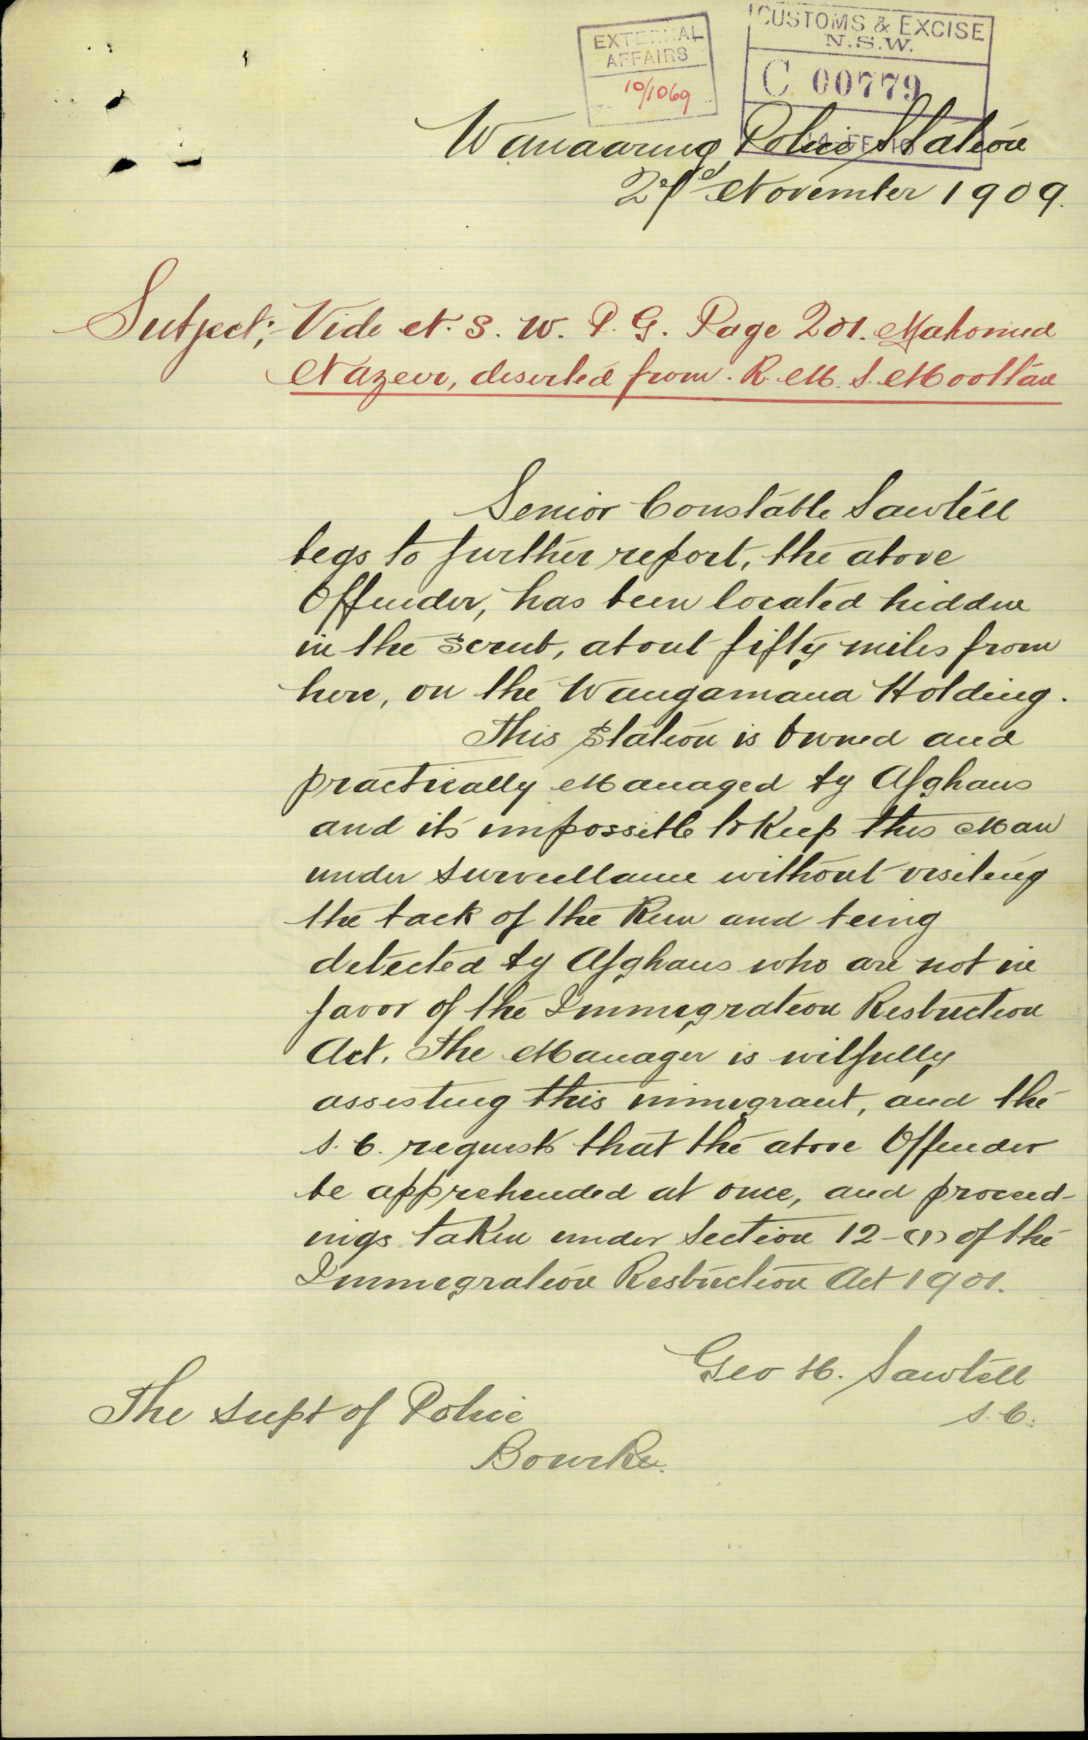 EXTERNAL
AFFAIRS
10/1069
CUSTOMS & EXCISE
N.S.W.
C 00779
Wanaaring Police Station
November 1909.
Subject; Vide N. S. W. P. G. Page 201. Mahomed
Nazeer, deserted from R. M. S. Mooltan
Senior Constable Sawtell
begs to further report, the above
Offender, has been located hidden
in the scrub, about fifty miles from
here, on the Wangamana Holding.
This Station is owned and
practically Managed by Afghans
and its impossible to Keep this Man
under surveillance without visiting
the back of the Run and being
detected by Afghans who are not in
favor of the Immigration Restriction
Act. The Manager is wilfully
assisting this immigrant, and the
S. C. requests that the above Offender
be apprehended at once, and proceed-
ings taken under Section 12-(1) of the
Immigration Restriction Act 1901.
Geo H. Sawtell
S. C.
The Supt of Police
Bourke.